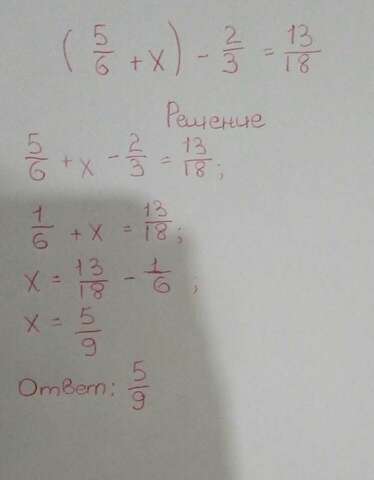 (5/6 + x) - 2/3 = 13/18
Решение
5/6 + x - 2/3 = 13/18;
1/6 + x = 13/18;
x = 13/18 - 1/6;
x = 5/9
Ответ: 5/9